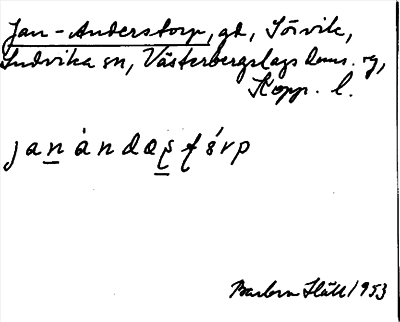 Jan-Anderstorp, gd, Sörvik,
Ludvika sn, Västerbergslags doms. tg,
Kopp. l.
janàndæʂʈórp
Barbro 1953